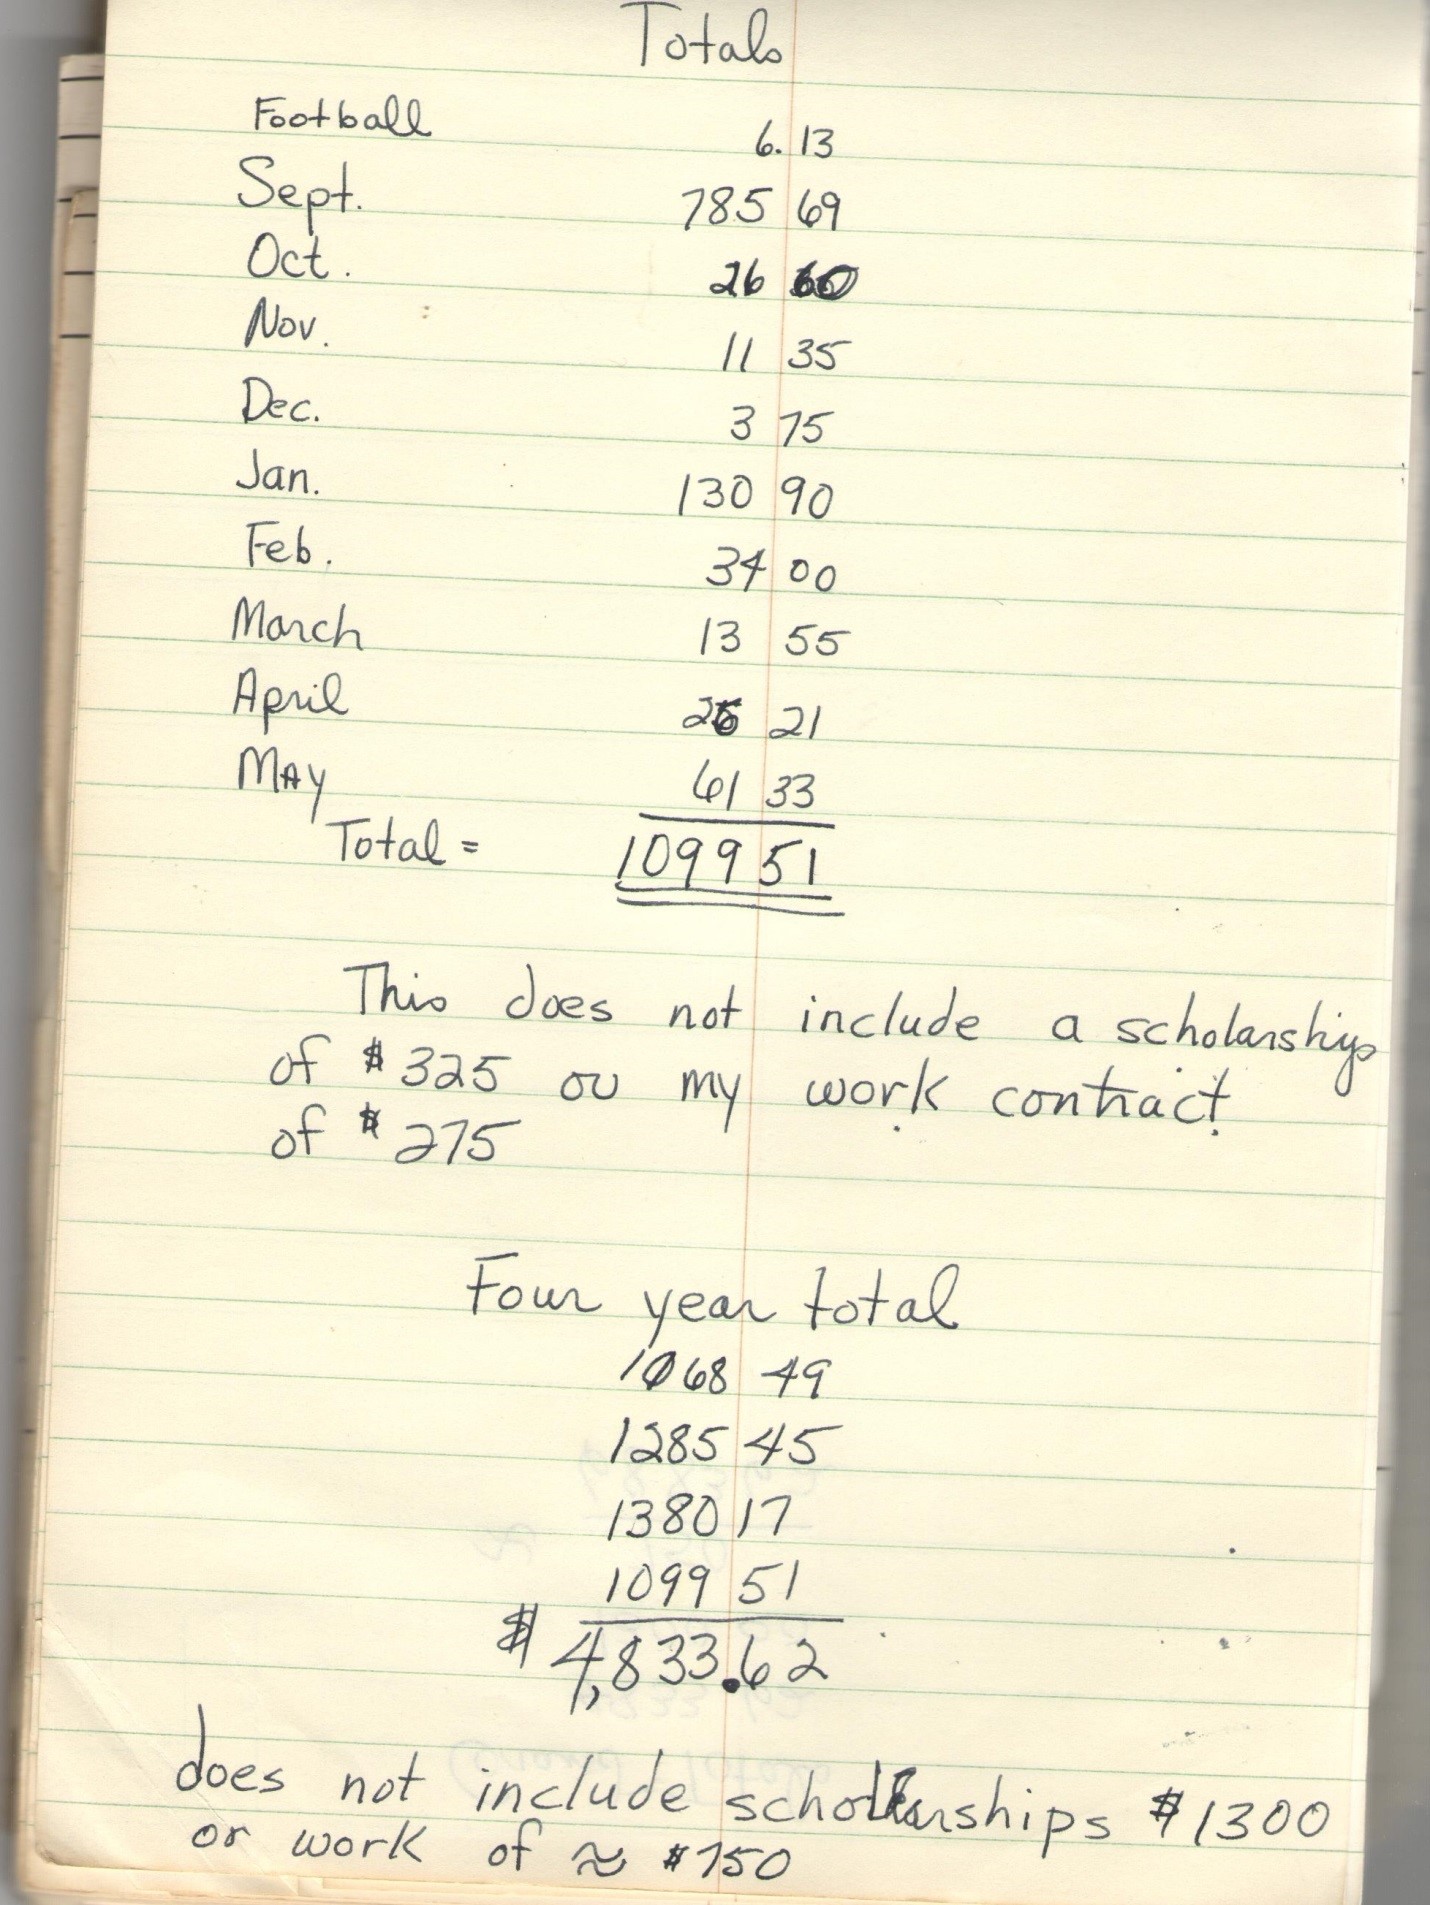 Totals
Football 6.13
Sept. 785 69
Oct. 26 60
Nov. 11 35
Dec. 3 75
Jan. 130 90
Feb. 34 00
March 13 55
April 26 21
MAY 61 33
Total = 1099 51
This does not include a scholarship
of $325 or my work contract
of $275
Four year total
1068 49
1285 45
1380 17
1099 51
$ 4,833.62
does not include scholarships $1300
or work of ≈ $750